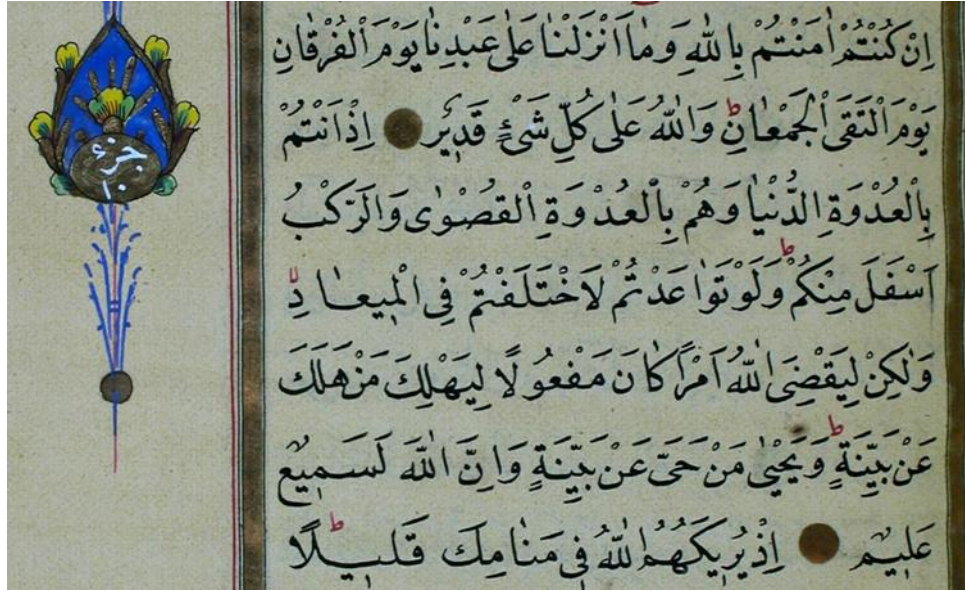 اِنْ كُنْتُمْ اٰمَنْتُمْ بِاللّٰهِ وَمَا اَنْزَلْنَا عَلٰى عَبْدِنَا يَوْمَ الْفُرْقَانِ
يَوْمَ الْتَقَى الْجَمْعَانِ ط وَاللّٰهُ عَلٰى كُلِّ شَىْءٍ قَدٖيرٌ اِذْ اَنْتُمْ
بِالْعُدْوَةِ الدُّنْيَا وَهُمْ بِالْعُدْوَةِ الْقُصْوٰى وَالرَّكْبُ
اَسْفَلَ مِنْكُمْ ط وَلَوْ تَوَاعَدْتُمْ لَاخْتَلَفْتُمْ فِى الْمٖيعَادِ لا
وَلٰكِنْ لِيَقْضِىَ اللّٰهُ اَمْرًا كَانَ مَفْعُولًا لِيَهْلِكَ مَنْ هَلَكَ
عَنْ بَيِّنَةٍ وَيَحْيٰى مَنْ حَىَّ عَنْ بَيِّنَةٍ ط وَاِنَّ اللّٰهَ لَسَمٖيعٌ
عَلٖيمٌ اِذْ يُرٖيكَهُمُ اللّٰهُ فٖى مَنَامِكَ قَلٖيلًا ط
جزء
١٠